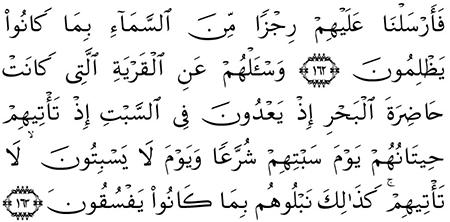 فَأَرْسَلْنَا عَلَيْهِمْ رِجْزًا مِّنَ السَّمَاءِ بِمَا كَانُوا۟
يَظْلِمُونَ ﴿١٦٢﴾ وَسْـَٔلْهُمْ عَنِ الْقَرْيَةِ الَّتِى كَانَتْ
حَاضِرَةَ الْبَحْرِ إِذْ يَعْدُونَ فِى السَّبْتِ إِذْ تَأْتِيهِمْ
حِيتَانُهُمْ يَوْمَ سَبْتِهِمْ شُرَّعًا وَيَوْمَ لَا يَسْبِتُونَ ۙ لَا
تَأْتِيهِمْ ۚ كَذَٰلِكَ نَبْلُوهُم بِمَا كَانُوا۟ يَفْسُقُونَ ﴿١٦٣﴾